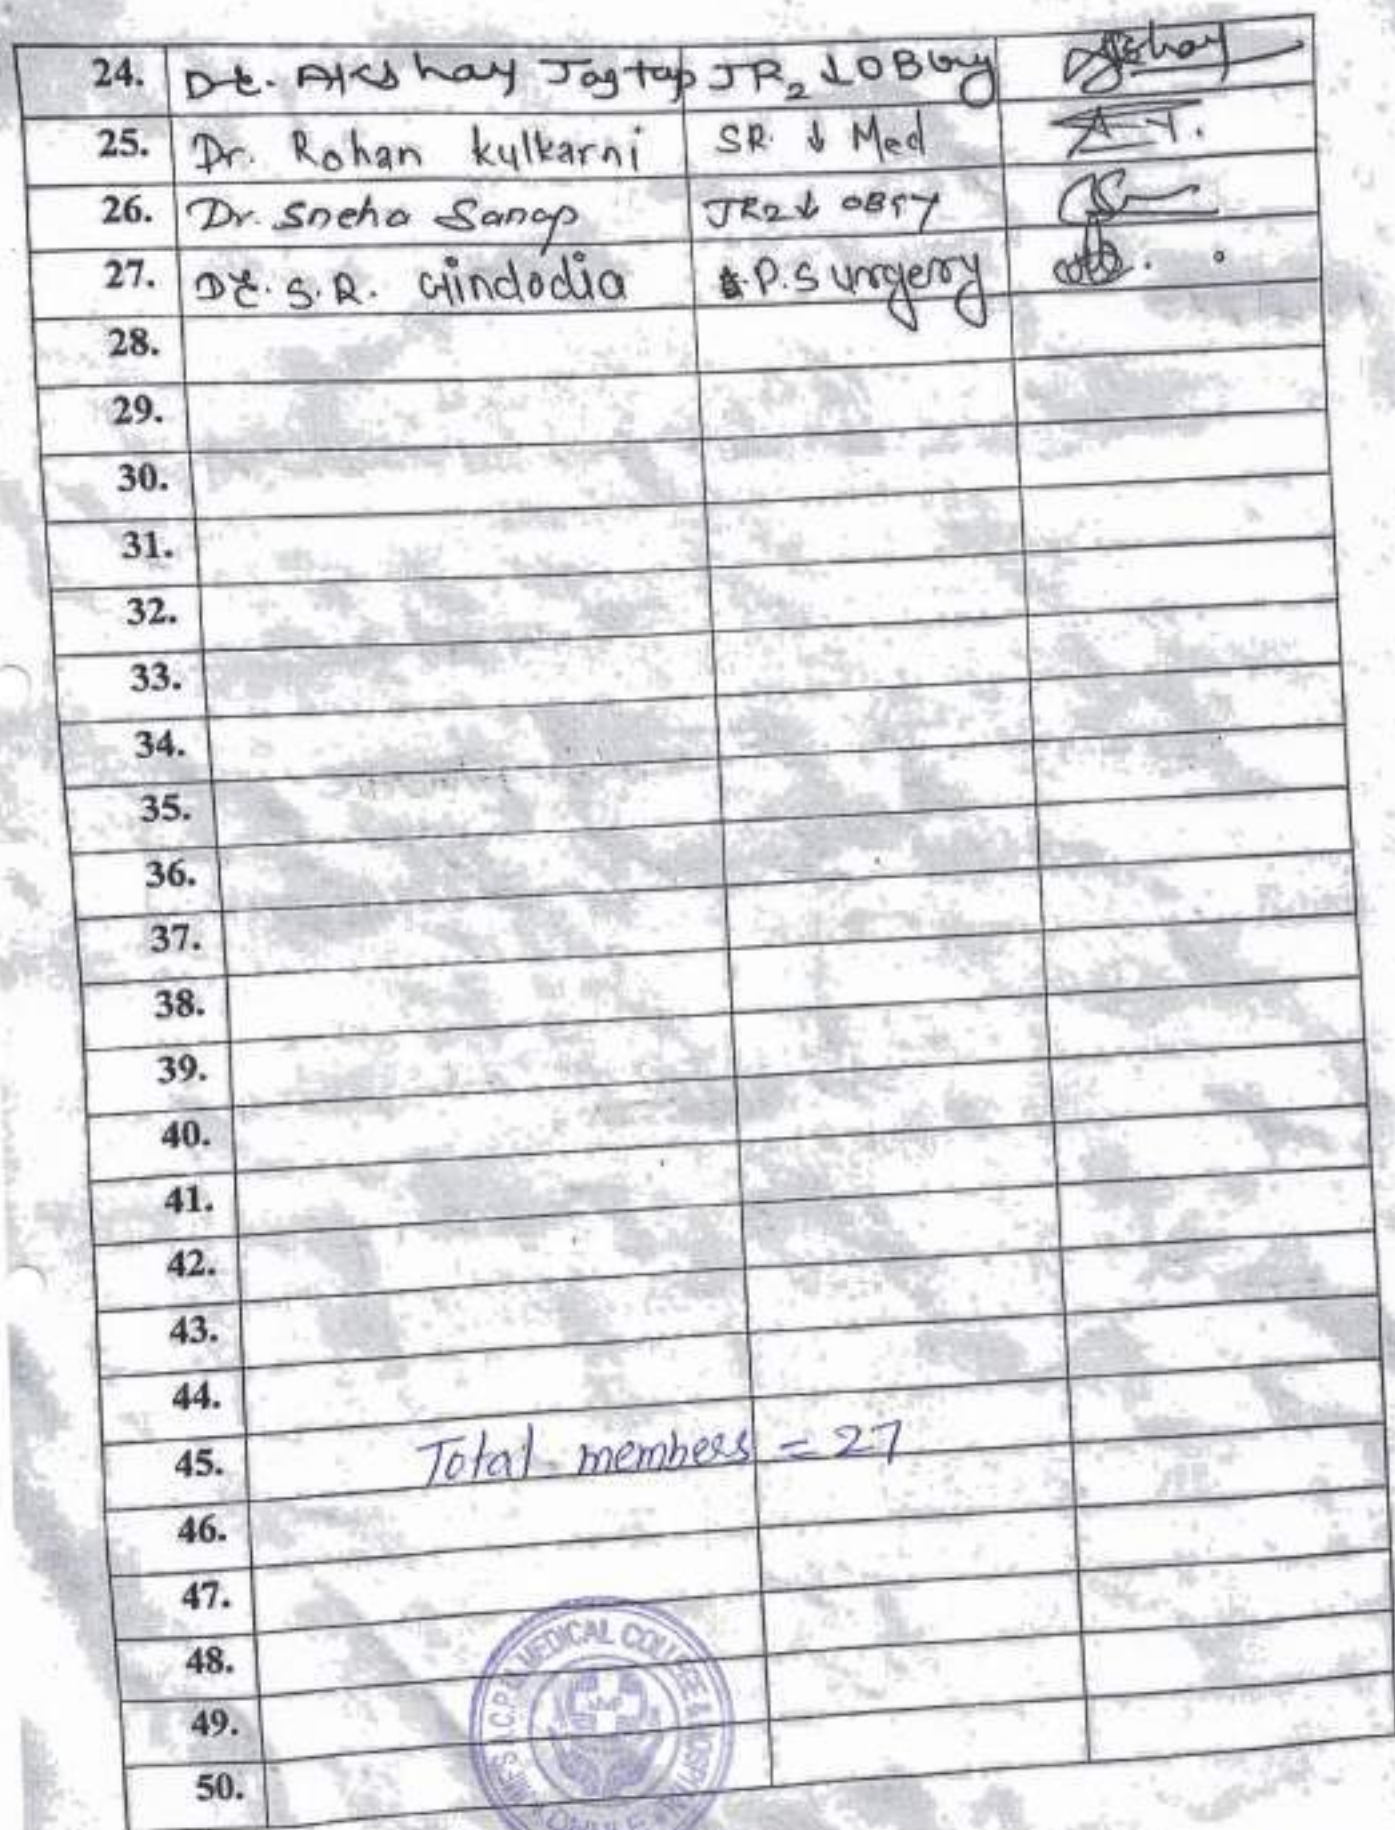 24. Dr. Akshay Jagtap JR2 ↓ OBGY Akshay
25. Dr. Rohan Kulkarni SR ↓ Med
26. Dr. Sneha Sanap JR2 ↓ OBGY
27. Dr. S.R. Gindodia P. Surgery
28.
29.
30.
31.
32.
33.
34.
35.
36.
37.
38.
39.
40.
41.
42.
43.
44.
45. Total members = 27
46.
47.
48.
49.
50.
MEDICAL COLLEGE &